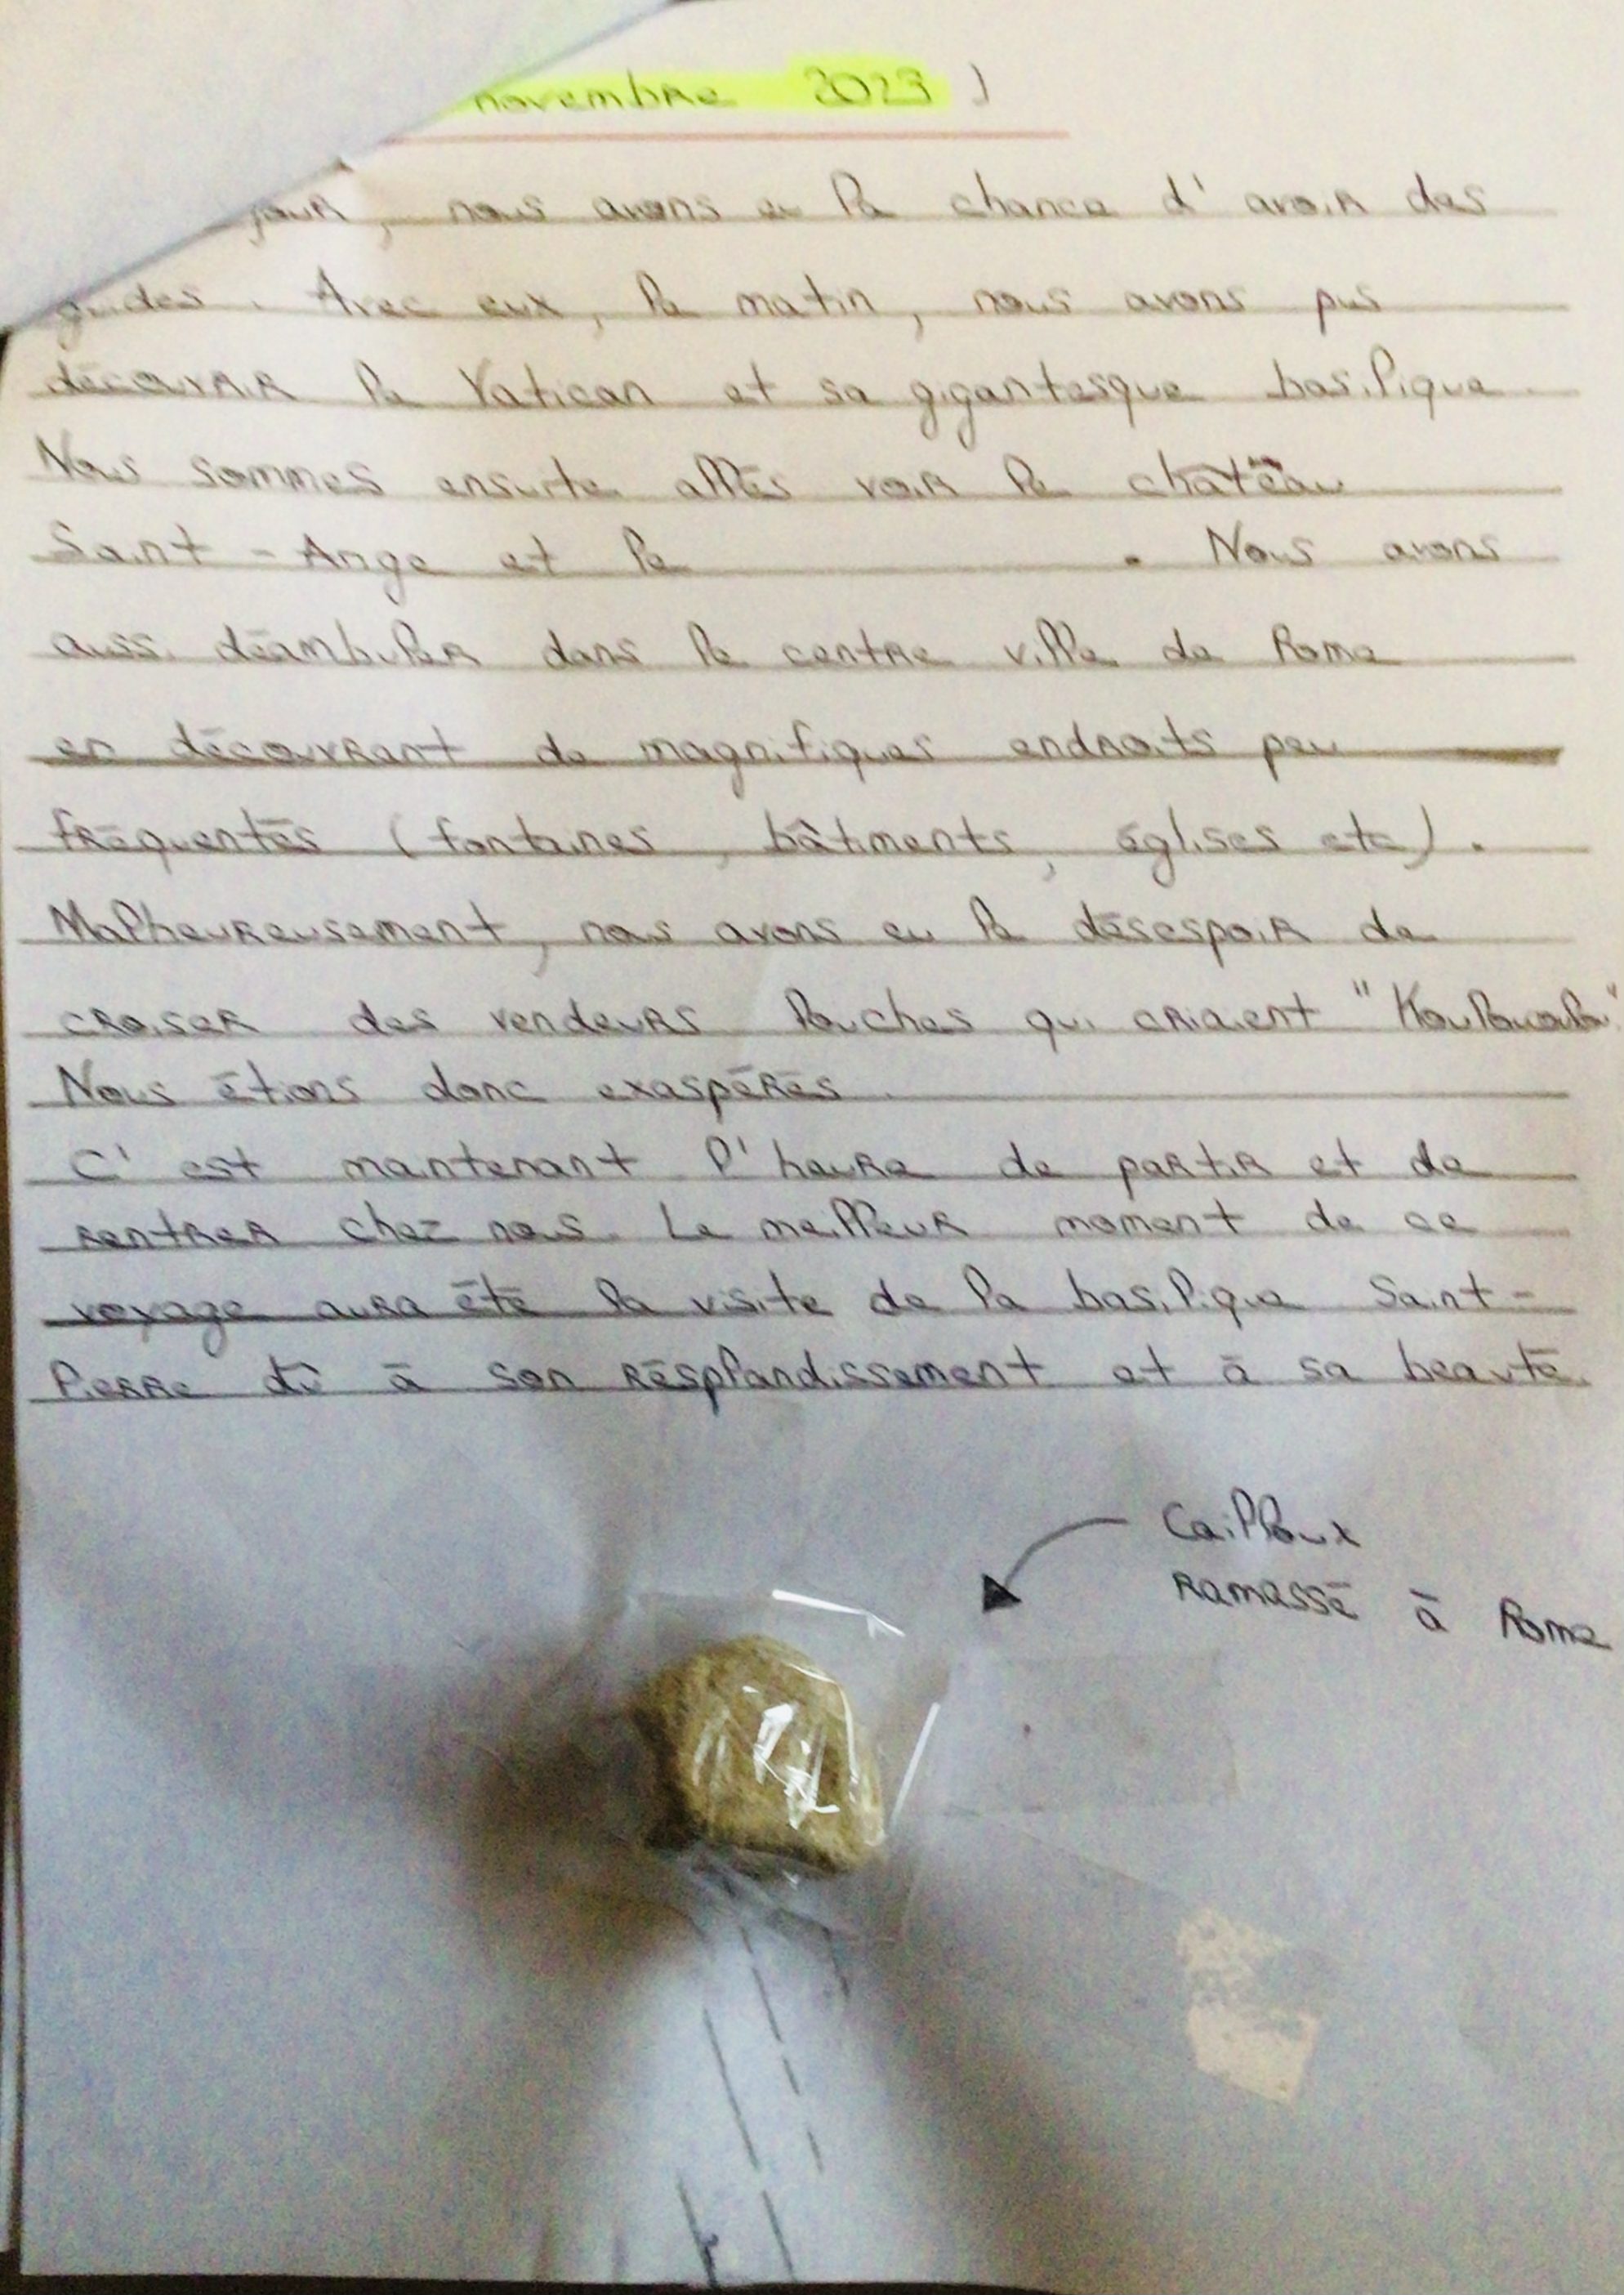 novembre 2023)
jour, nous avons eu la chance d'avoir des
guides. Avec eux, le matin, nous avons pus
découvrir le Vatican et sa gigantesque basilique.
Nous sommes ensuite allés voir le château
Saint-Ange et le . Nous avons
aussi déambuler dans le centre ville de Rome
en découvrant de magnifiques endroits peu
fréquentés (fontaines, bâtiments, églises etc).
Malheureusement, nous avons eu le désespoir de
croiser des vendeurs louches qui criaient
Nous étions donc exaspérés.
C'est maintenant l'heure de partir et de
rentrer chez nous. Le meilleur moment de ce
voyage aura été la visite de la basilique Saint-
Pierre dû à son résplandissement et à sa beauté.
Cailloux
ramassé à Rome